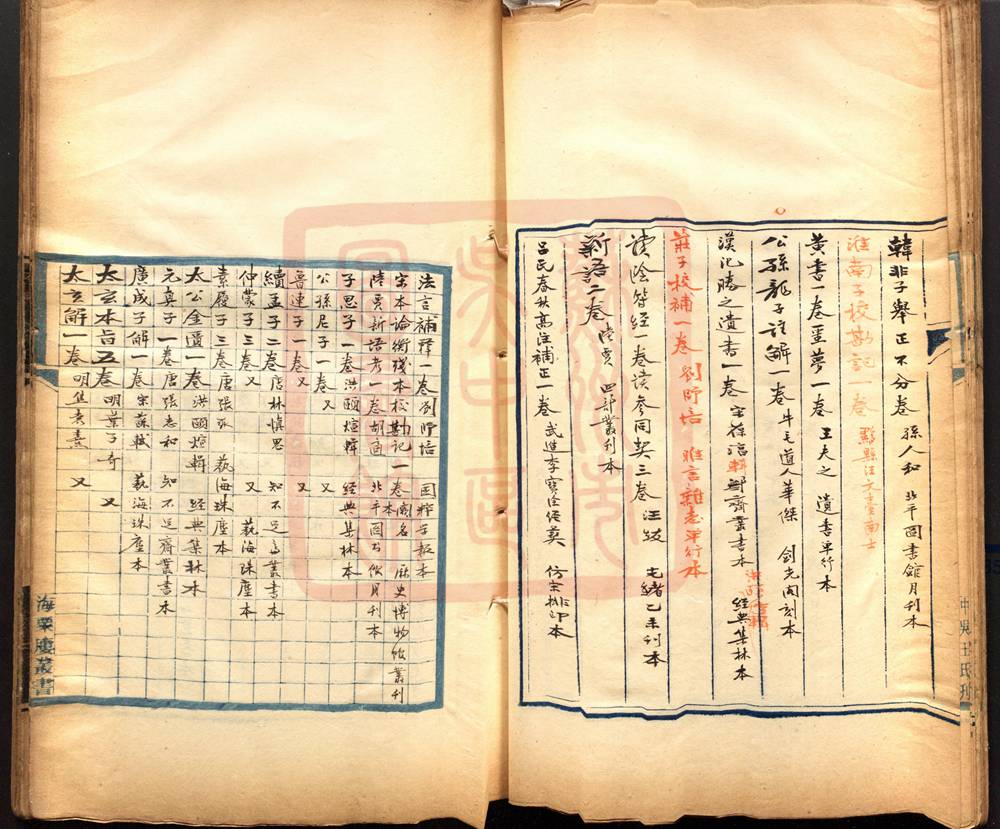 韓非子舉正不分卷 孫人和 北平圖書館月刊本
淮南子校勘記一卷 黟縣汪文臺南士
黃書一卷噩夢一卷 王夫之 遺書單行本
公孫龍子註解一卷 牛毛道人華傑 劍光閣刻本
漢氾勝之遺書一卷 宋葆淳輯 鄦齋叢書本 洪頤煊輯 經典集林本
莊子校補一卷 劉師培 雅言雜志單行本
讀陰符經一卷讀參同契三卷 汪紱 光緒乙未刊本
新語二卷 陸賈 四部叢刊本
呂氏春秋高注補正一卷 武進李寶洤經羲 仿宋排印本
法言補釋一卷劉師培 國粹學報本
宋本論衡殘本校勘記一卷闕名 歷史博物館叢刊本
陸賈新語考一卷胡適 北平圖書館月刊本
子思子一卷洪頤煊輯 經典集林本
公孫尼子一卷 又 又
魯連子一卷 又 又
續孟子二卷唐林慎思 知不足齋叢書本
伸蒙子三卷 又 又 藝海珠塵本
素履子三卷唐張弧 藝海珠塵本
太公金匱一卷 洪頤煊輯 經典集林本
元真子一卷 唐張志和 知不足齋叢書本
廣成子解一卷 宋蘇軾 藝海珠塵本
太玄本旨五卷 明葉子奇 又
太玄解一卷 明焦袁熹 又
海粟樓叢書
中吳王氏